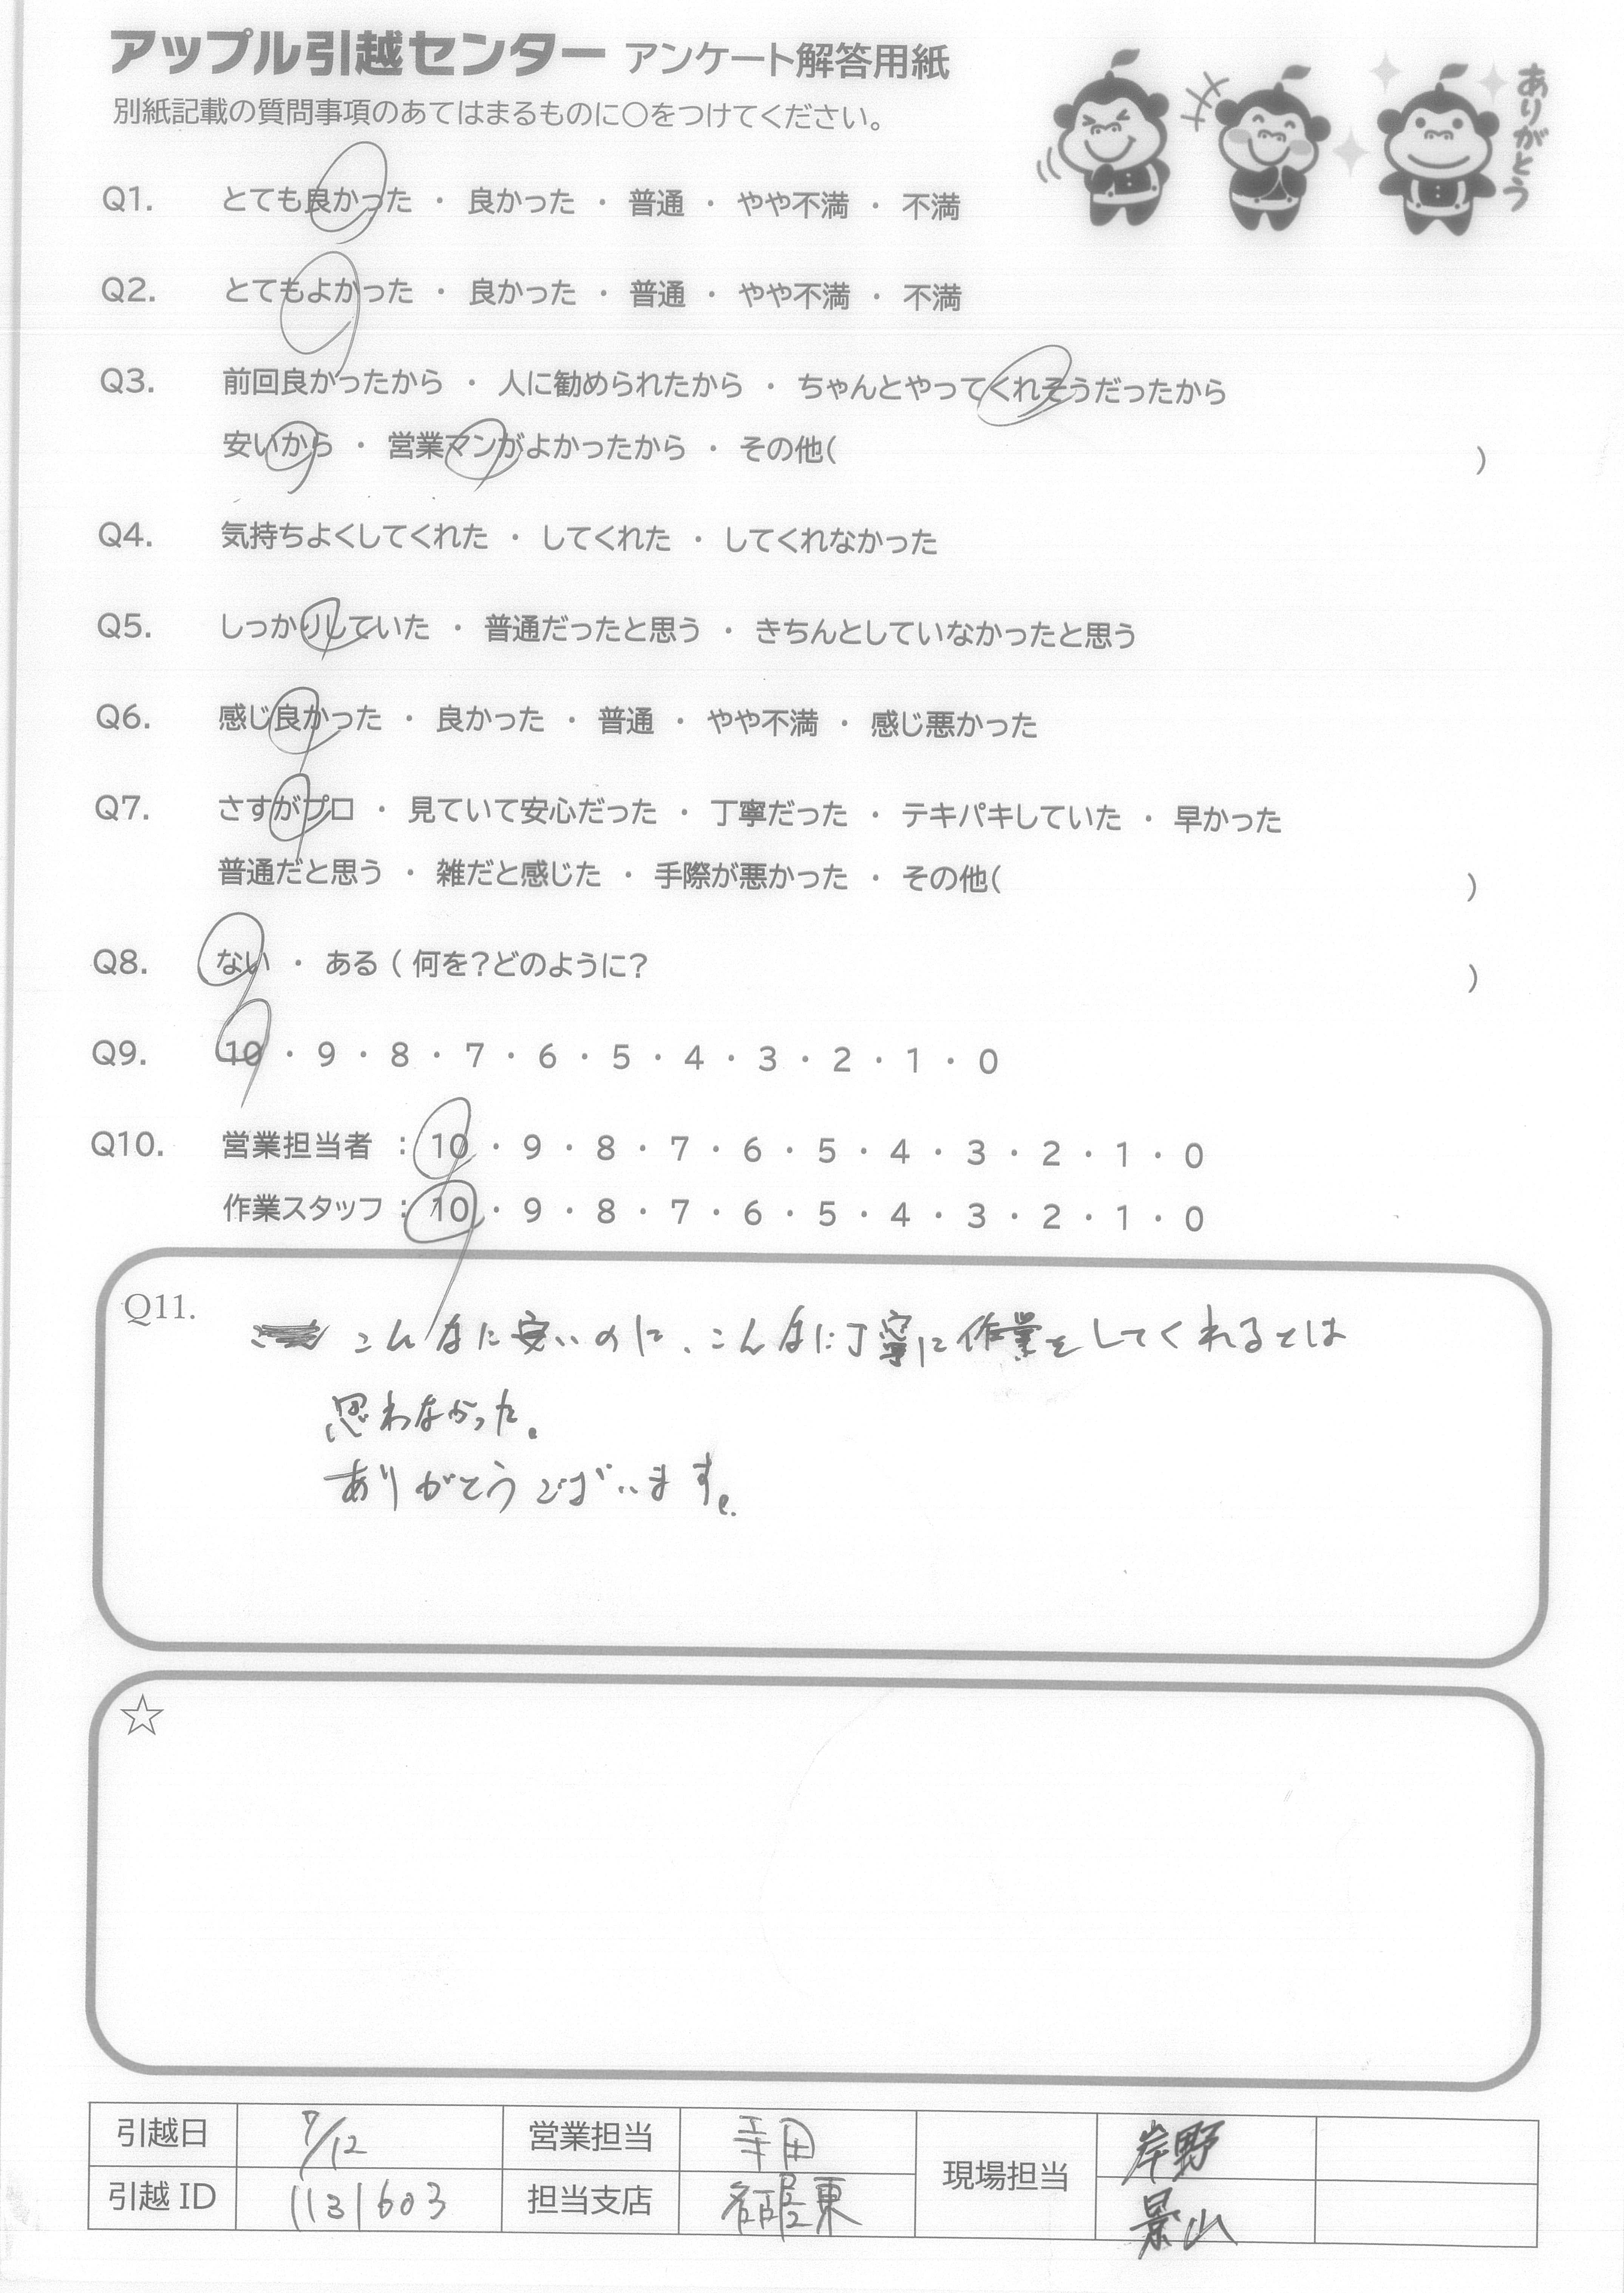 アップル引越センター アンケート解答用紙
別紙記載の質問事項のあてはまるものに〇をつけてください。
ありがとう
Q1. とても良かった ・ 良かった ・ 普通 ・ やや不満 ・ 不満
Q2. とてもよかった ・ 良かった ・ 普通 ・ やや不満 ・ 不満
Q3. 前回良かったから ・ 人に勧められたから ・ ちゃんとやってくれそうだったから
安いから ・ 営業マンがよかったから ・ その他( )
Q4. 気持ちよくしてくれた ・ してくれた ・ してくれなかった
Q5. しっかりしていた ・ 普通だったと思う ・ きちんとしていなかったと思う
Q6. 感じ良かった ・ 良かった ・ 普通 ・ やや不満 ・ 感じ悪かった
Q7. さすがプロ ・ 見ていて安心だった ・ 丁寧だった ・ テキパキしていた ・ 早かった
普通だと思う ・ 雑だと感じた ・ 手際が悪かった ・ その他( )
Q8. ない ・ ある ( 何を?どのように? )
Q9. 10 ・ 9 ・ 8 ・ 7 ・ 6 ・ 5 ・ 4 ・ 3 ・ 2 ・ 1 ・ 0
Q10. 営業担当者 : 10 ・ 9 ・ 8 ・ 7 ・ 6 ・ 5 ・ 4 ・ 3 ・ 2 ・ 1 ・ 0
作業スタッフ : 10 ・ 9 ・ 8 ・ 7 ・ 6 ・ 5 ・ 4 ・ 3 ・ 2 ・ 1 ・ 0
Q11. こんなに安いのに、こんなに丁寧に作業をしてくれるとは
思わなかった。
ありがとうございます。
☆
引越日 7/12 営業担当 寺田 現場担当 岸野
引越 ID 1131603 担当支店 名古屋東 景山